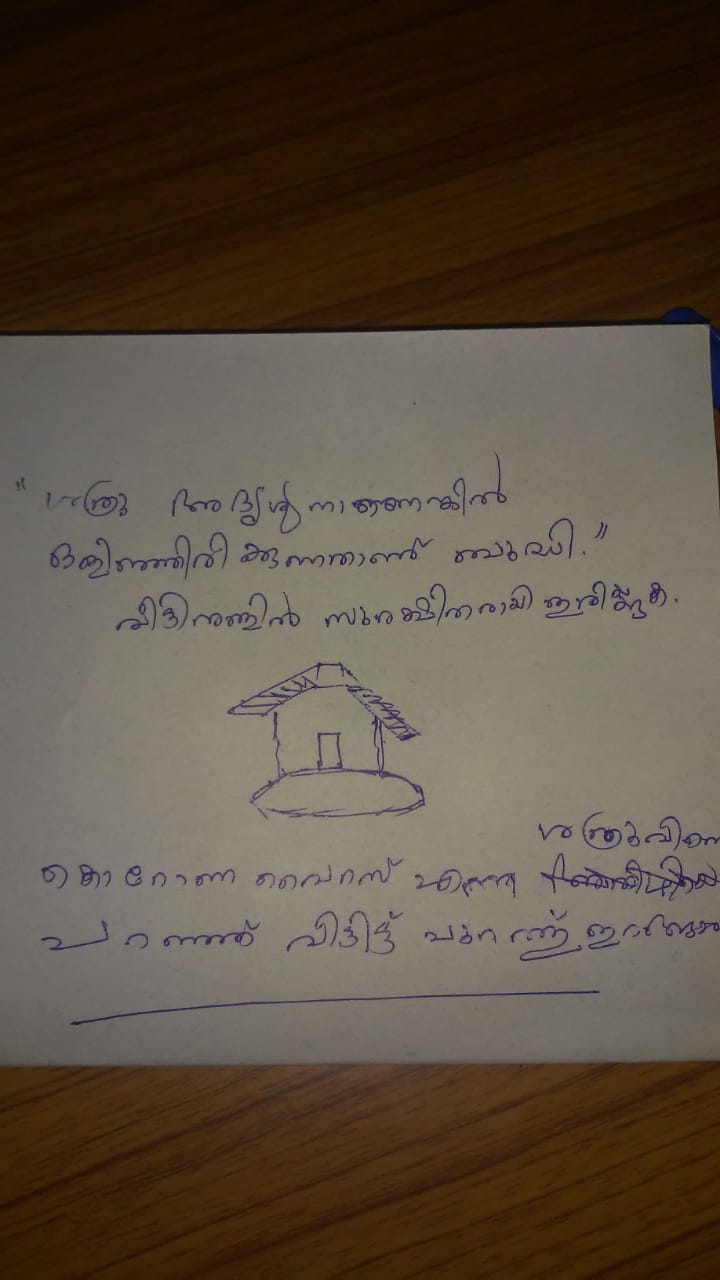 "ശത്രു അദൃശ്യനാണെങ്കിൽ
ഒളിഞ്ഞിരിക്കുന്നതാണ് ബുദ്ധി."
വീട്ടിനുള്ളിൽ സുരക്ഷിതരായി ഇരിക്കുക.
ശത്രുവിനെ
കൊറോണ വൈറസ് എന്ന
പറഞ്ഞ് വിട്ടിട്ട് പുറത്ത്